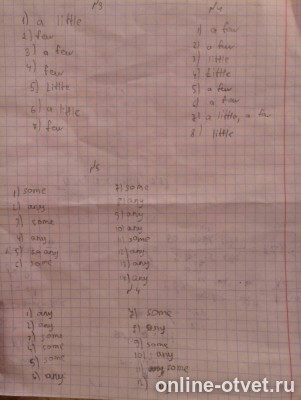 №3
1) a little
2) few
3) a few
4) few
5) little
6) a little
7) few
№4
1) a few
2) a few
3) little
4) Little
5) a few
6) a few
7) a little, a few
8) little
1) some
2) any
3) some
4) any
5) any
6) some
7) some
any
any
any
some
any
any
any
№4
1) any
2) any
3) some
4) some
5) some
6) any
7) some
8) any
9) some
10) any
11) some
online-otvet.ru